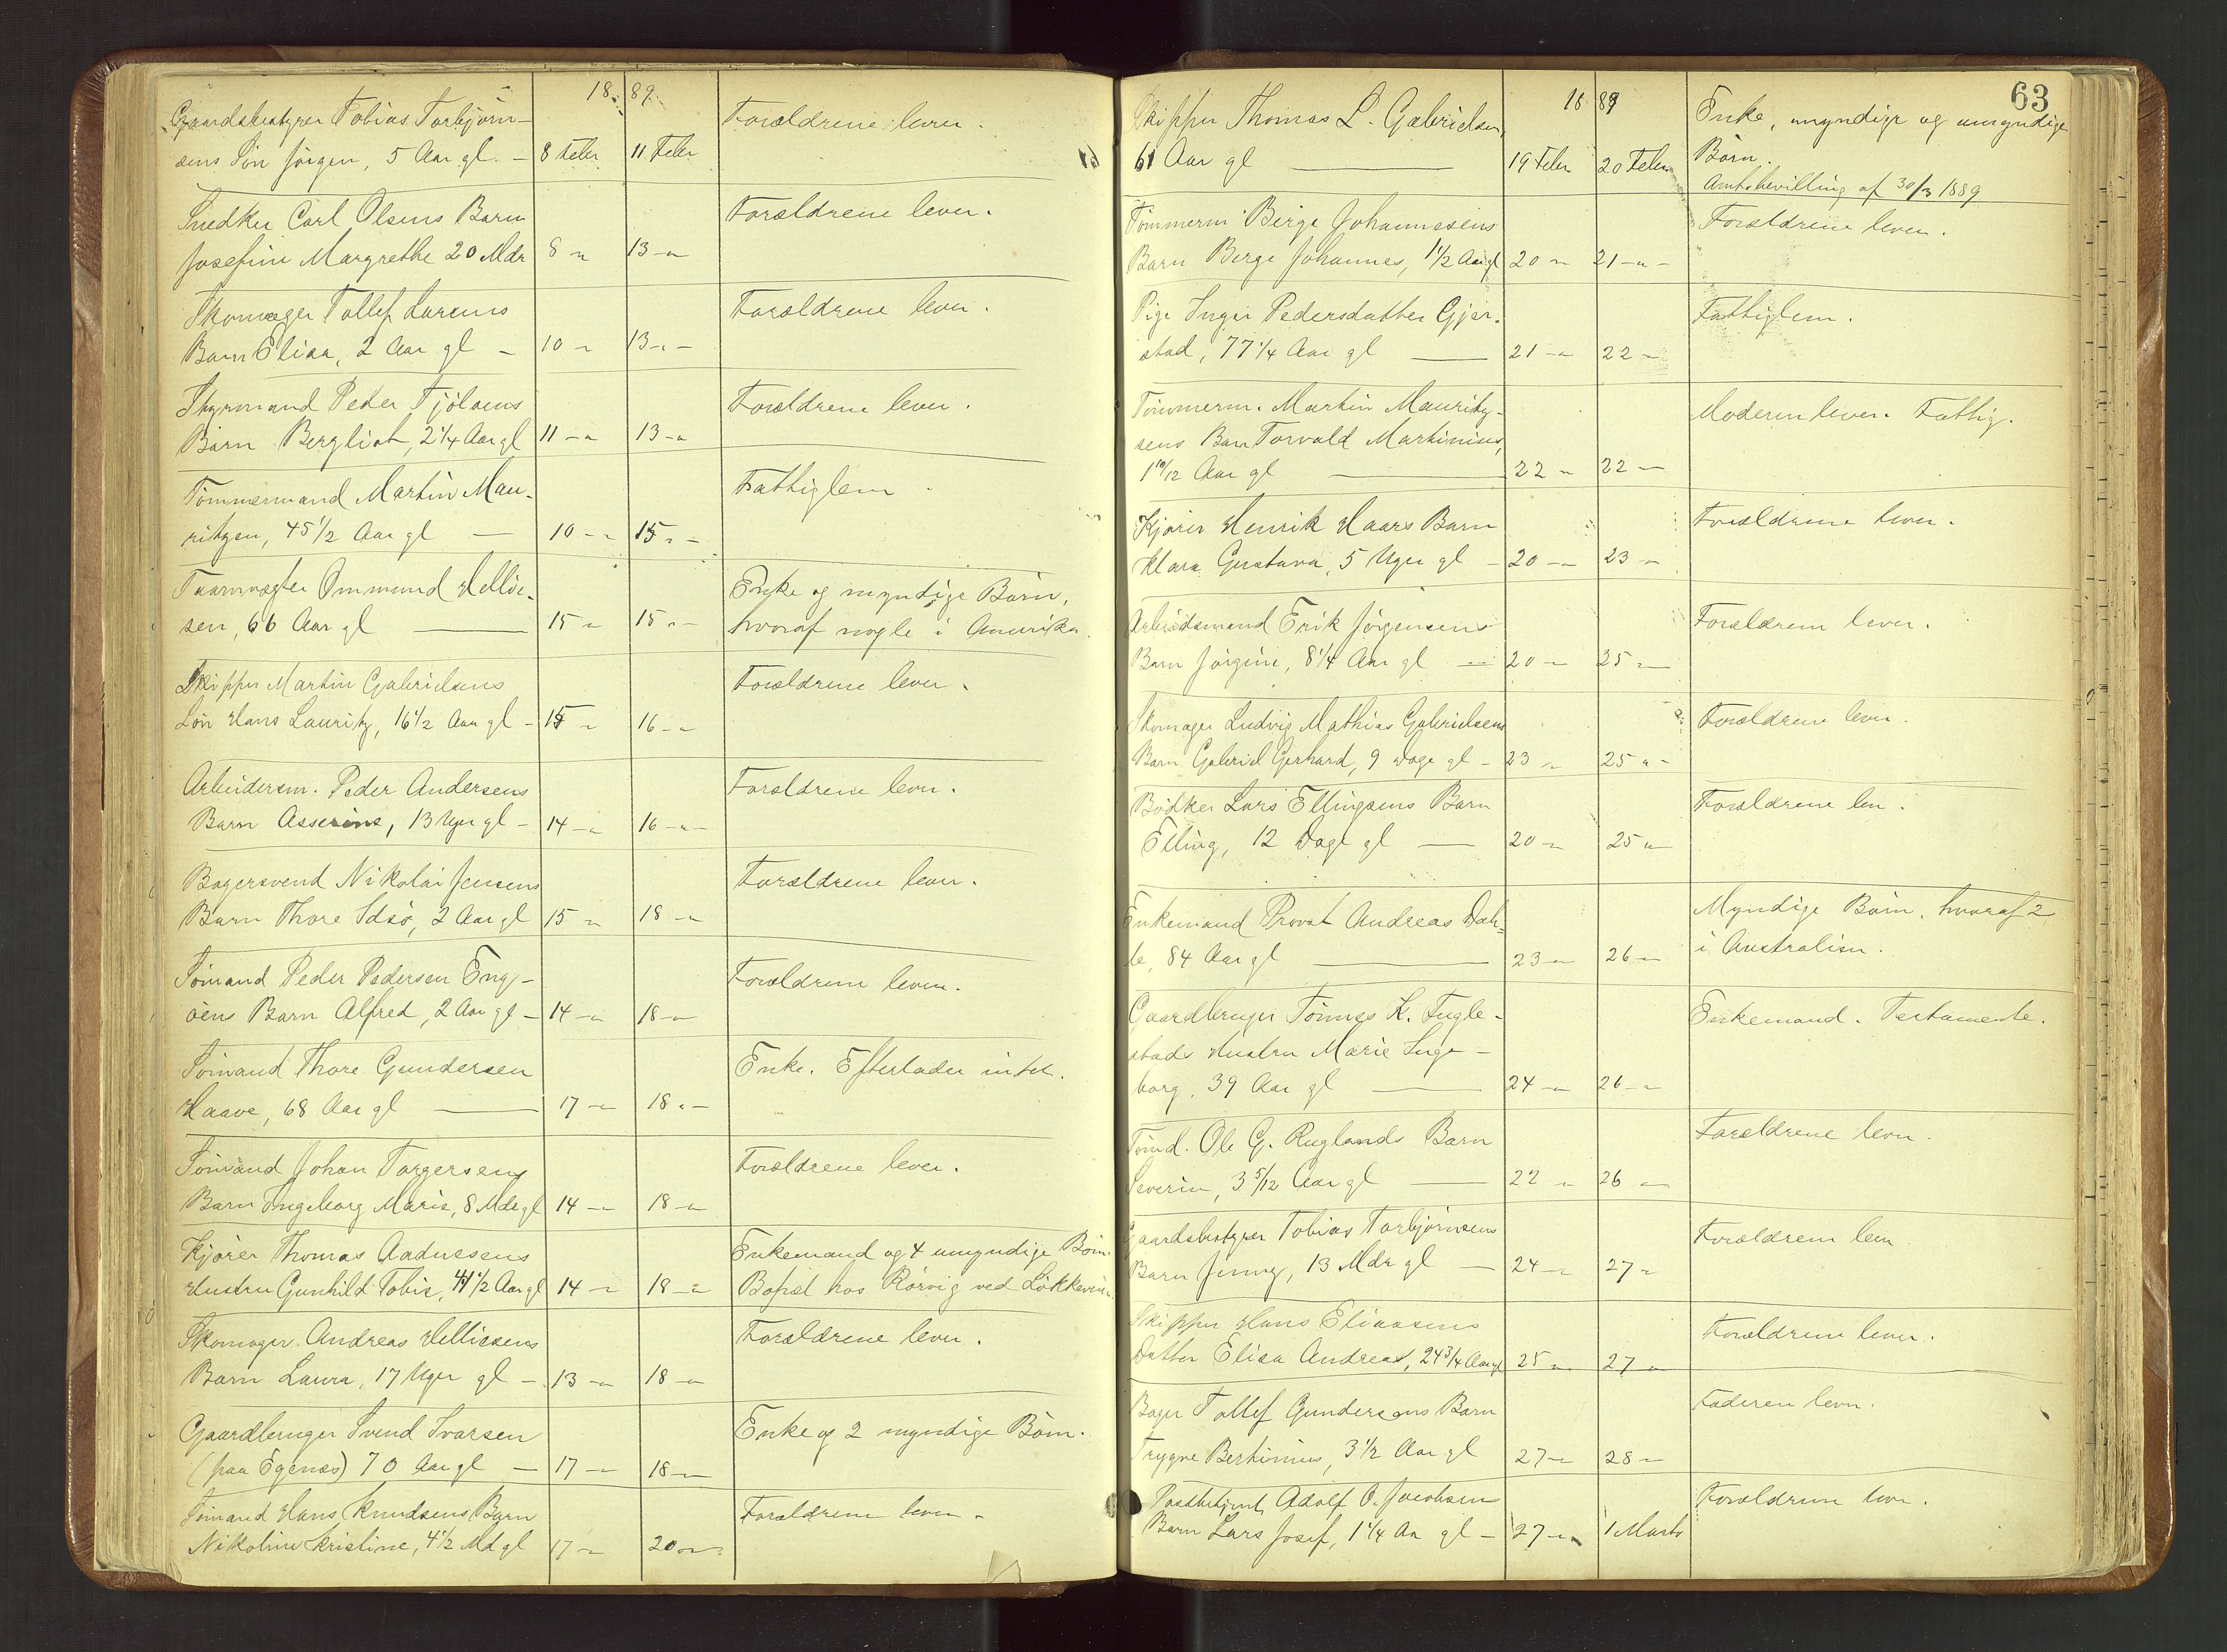 18 89
Gaardsbestyrer Tobias Torbjörn- Forældrene lever.
sens Sön Jörgen, 5 Aar gl. – 8 Febr 11 Febr
Snedker Carl Olsens Barn Forældrene lever.
Josefine Margrethe 20 Mdr 8 – 13 –
Skomager Tollef Larsens Forældrene lever.
Barn Elisa, 2 Aar gl – 10 – 13 –
Styrmand Peder Tjölsens Forældrene lever.
Barn Bergliot, 2 1/4 Aar gl 11 – 13 –
Tömmermand Martin Mau- Fattiglem.
ritzen, 45 1/2 Aar gl – 10 – 15 –
Taarnvægter Ommund Hellie- Enke og myndige Börn,
sen, 66 Aar gl – 15 – 15 – hvoraf nogle i Amerika.
Skipper Martin Gabrielsens Forældrene lever.
Sön Hans Lauritz, 16 1/2 Aar gl – 15 – 16 –
Arbeidersm. Peder Andersens Forældrene lever.
Barn Asserine, 13 Uger gl – 14 – 16 –
Bagersvend Nikolai Jensens Forældrene lever.
Barn Thore Idsö, 2 Aar gl 15 – 18 –
Sömand Peder Pedersen Eng- Forældrene lever.
öens Barn Alfred, 2 Aar gl – 14 – 18 –
Sömand Thore Gundersen Enke. Efterlader intet.
Haave, 68 Aar gl – 17 – 18 –
Sömand Johan Torgersens Forældrene lever.
Barn Ingeborg Marie, 8 Mdr gl 14 – 18 –
Kjörer Thomas Aadnesens Enkemand og 4 umyndige Börn.
Hustru Gunhild Tobie, 41 1/2 Aar gl 14 – 18 – Bopæl hos Rörvig ved Lökkeveien.
Skomager Andreas Helliesens Forældrene lever.
Barn Laura, 17 Uger gl – 13 – 18 –
Gaardbruger Svend Ivarsen Enke og 2 myndige Börn.
(paa Egenæs) 70 Aar gl – 17 – 18 –
Sömand Hans Knudsens Barn Forældrene lever.
Nikoline Kristine, 4 1/2 Md gl 17 – 20 –
63
18 89
Skipper Thomas L. Gabrielsen, Enke, myndige og umyndige
61 Aar gl – 19 Febr 20 Febr Börn.
Amtsbevilling af 30/3 1889
Tömmerm Börge Johannesens Forældrene lever.
Barn Börge Johannes, 1 1/2 Aar gl 20 – 21 –
Pige Inger Pedersdatter Gjer- Fattiglem.
stad, 77 1/4 Aar gl – 21 – 22 –
Tömmerm. Martin Mauritz- Moderen lever. Fattig.
sens Barn Torvald Martinius,
1 10/12 Aar gl – 22 – 22 –
Kjörer Henrik Haars Barn Forældrene lever.
Klara Gustava, 5 Uger gl – 20 – 23 –
Arbeidsmand Erik Jörgensens Forældrene lever.
Barn Jörgine, 8 1/4 Aar gl – 20 – 25 –
Skomager Ludvig Mathias Gabrielsens Forældrene lever.
Barn Gabriel Gerhard, 9 Dage gl – 23 – 25 –
Bödker Lars Ellingsens Barn Forældrene lev.
Elling, 12 Dage gl – 20 – 25 –
Enkemand Provst Andreas Dah- Myndige Börn, hvoraf 2
le, 84 Aar gl – 23 – 26 – i Australien.
Gaardbruger Tönnes K. Fugle- Enkemand. Testamente.
stads Hustru Marie Inge-
borg, 39 Aar gl – 24 – 26 –
Tömd. Ole G. Ruglands Barn Forældrene lever.
Severin, 3 5/12 Aar gl – 22 – 26 –
Gaardsbestyrer Tobias Torbjörnsens Forældrene lever
Barn Jenny, 13 Mdr gl – 24 – 27 –
Skipper Hans Eliassens Forældrene lever.
Datter Elisa Andrea, 24 3/4 Aar gl 25 – 27 –
Bager Tollef Gundersens Barn Faderen lever.
Trygve Bertinius, 3 1/2 Aar gl 27 – 28 –
Postbetjent Adolf O. Jacobsen Forældrene lever.
Barn Lars Josef, 1 1/4 Aar gl – 27 – 1 Marts